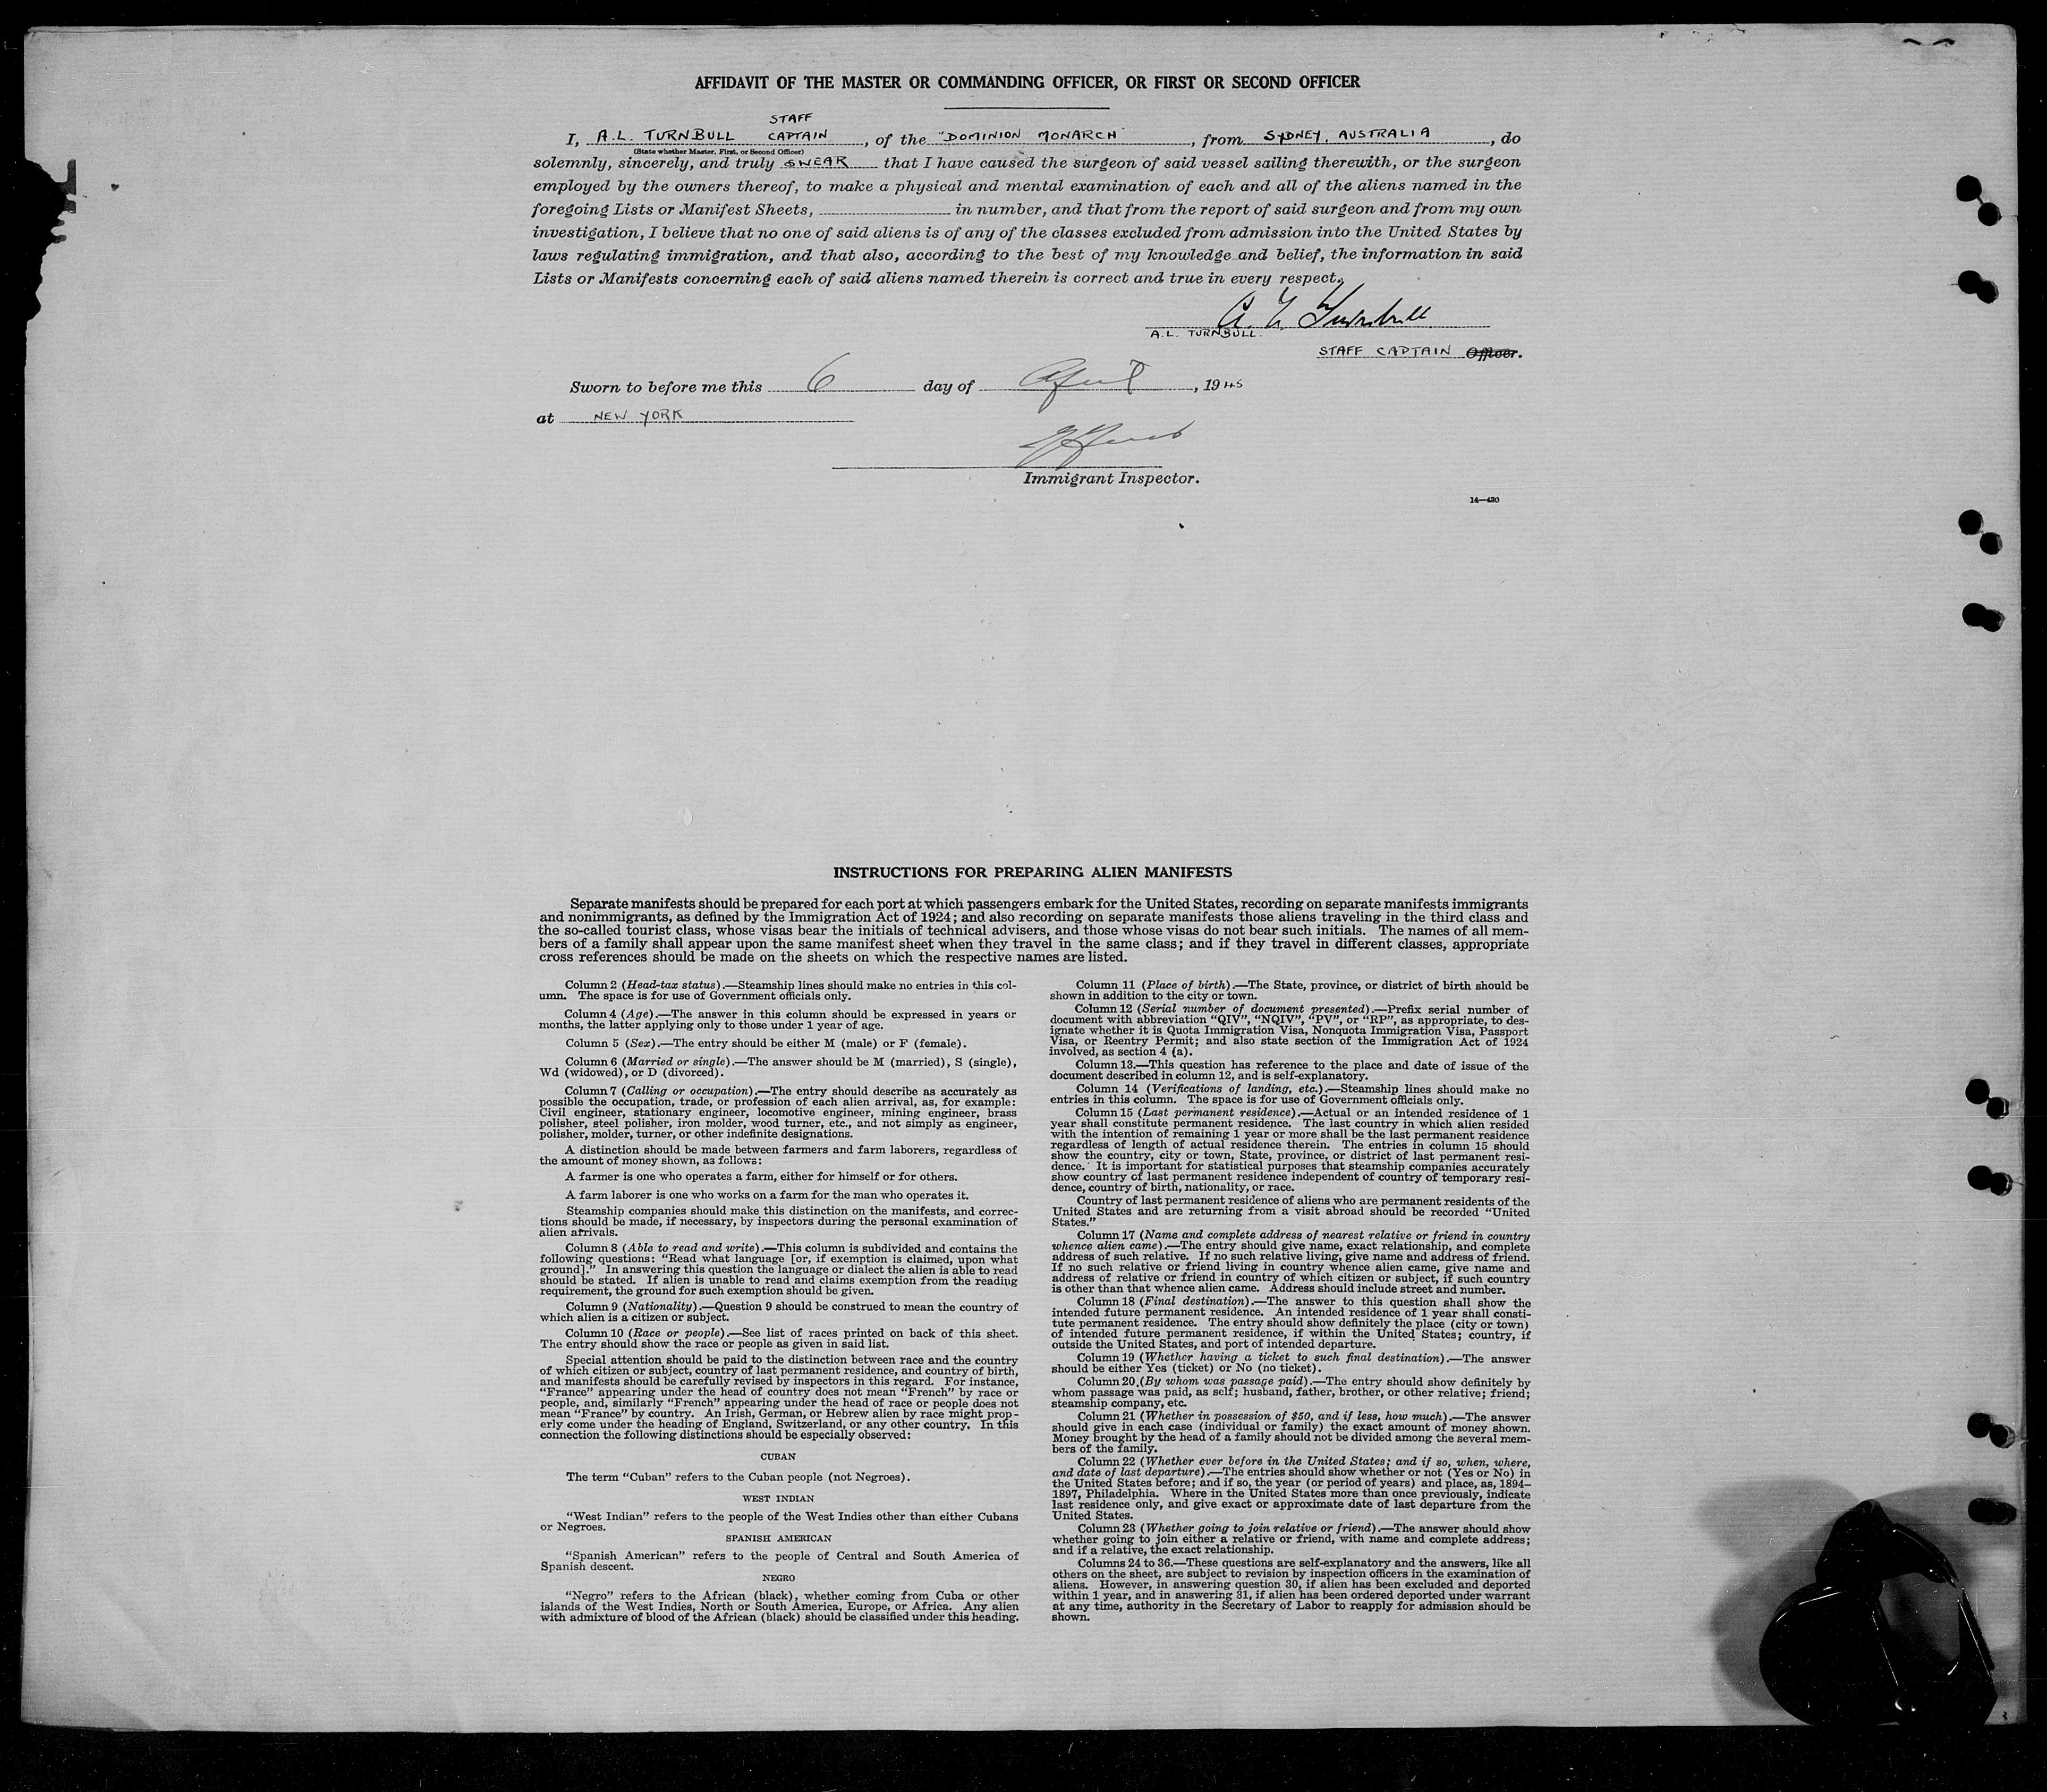 AFFIDAVIT OF THE MASTER OR COMMANDING OFFICER, OR FIRST OR SECOND OFFICER
STAFF
I, A.L. TURNBULL CAPTAIN, of the "DOMINION MONARCH", from SYDNEY, AUSTRALIA, do
(State whether Master, First, or Second Officer)
solemnly, sincerely, and truly SWEAR that I have caused the surgeon of said vessel sailing therewith, or the surgeon
employed by the owners thereof, to make a physical and mental examination of each and all of the aliens named in the
foregoing Lists or Manifest Sheets, in number, and that from the report of said surgeon and from my own
investigation, I believe that no one of said aliens is of any of the classes excluded from admission into the United States by
laws regulating immigration, and that also, according to the best of my knowledge and belief, the information in said
Lists or Manifests concerning each of said aliens named therein is correct and true in every respect.
A. L. Turnbull
A.L. TURNBULL.
STAFF CAPTAIN Officer.
Sworn to before me this 6 day of April, 1945
at NEW YORK
Immigrant Inspector.
14—430
INSTRUCTIONS FOR PREPARING ALIEN MANIFESTS
Separate manifests should be prepared for each port at which passengers embark for the United States, recording on separate manifests immigrants
and nonimmigrants, as defined by the Immigration Act of 1924; and also recording on separate manifests those aliens traveling in the third class and
the so-called tourist class, whose visas bear the initials of technical advisers, and those whose visas do not bear such initials. The names of all mem-
bers of a family shall appear upon the same manifest sheet when they travel in the same class; and if they travel in different classes, appropriate
cross references should be made on the sheets on which the respective names are listed.
Column 2 (Head-tax status).—Steamship lines should make no entries in this col-
umn. The space is for use of Government officials only.
Column 4 (Age).—The answer in this column should be expressed in years or
months, the latter applying only to those under 1 year of age.
Column 5 (Sex).—The entry should be either M (male) or F (female).
Column 6 (Married or single).—The answer should be M (married), S (single),
Wd (widowed), or D (divorced).
Column 7 (Calling or occupation).—The entry should describe as accurately as
possible the occupation, trade, or profession of each alien arrival, as, for example:
Civil engineer, stationary engineer, locomotive engineer, mining engineer, brass
polisher, steel polisher, iron molder, wood turner, etc., and not simply as engineer,
polisher, molder, turner, or other indefinite designations.
A distinction should be made between farmers and farm laborers, regardless of
the amount of money shown, as follows:
A farmer is one who operates a farm, either for himself or for others.
A farm laborer is one who works on a farm for the man who operates it.
Steamship companies should make this distinction on the manifests, and correc-
tions should be made, if necessary, by inspectors during the personal examination of
alien arrivals.
Column 8 (Able to read and write).—This column is subdivided and contains the
following questions: "Read what language [or, if exemption is claimed, upon what
ground]." In answering this question the language or dialect the alien is able to read
should be stated. If alien is unable to read and claims exemption from the reading
requirement, the ground for such exemption should be given.
Column 9 (Nationality).—Question 9 should be construed to mean the country of
which alien is a citizen or subject.
Column 10 (Race or people).—See list of races printed on back of this sheet.
The entry should show the race or people as given in said list.
Special attention should be paid to the distinction between race and the country
of which citizen or subject, country of last permanent residence, and country of birth,
and manifests should be carefully revised by inspectors in this regard. For instance,
"France" appearing under the head of country does not mean "French" by race or
people, and, similarly "French" appearing under the head of race or people does not
mean "France" by country. An Irish, German, or Hebrew alien by race might prop-
erly come under the heading of England, Switzerland, or any other country. In this
connection the following distinctions should be especially observed:
CUBAN
The term "Cuban" refers to the Cuban people (not Negroes).
WEST INDIAN
"West Indian" refers to the people of the West Indies other than either Cubans
or Negroes.
SPANISH AMERICAN
"Spanish American" refers to the people of Central and South America of
Spanish descent.
NEGRO
"Negro" refers to the African (black), whether coming from Cuba or other
islands of the West Indies, North or South America, Europe, or Africa. Any alien
with admixture of blood of the African (black) should be classified under this heading.
Column 11 (Place of birth).—The State, province, or district of birth should be
shown in addition to the city or town.
Column 12 (Serial number of document presented).—Prefix serial number of
document with abbreviation "QIV", "NQIV", "PV", or "RP", as appropriate, to des-
ignate whether it is Quota Immigration Visa, Nonquota Immigration Visa, Passport
Visa, or Reentry Permit; and also state section of the Immigration Act of 1924
involved, as section 4 (a).
Column 13.—This question has reference to the place and date of issue of the
document described in column 12, and is self-explanatory.
Column 14 (Verifications of landing, etc.).—Steamship lines should make no
entries in this column. The space is for use of Government officials only.
Column 15 (Last permanent residence).—Actual or an intended residence of 1
year shall constitute permanent residence. The last country in which alien resided
with the intention of remaining 1 year or more shall be the last permanent residence
regardless of length of actual residence therein. The entries in column 15 should
show the country, city or town, State, province, or district of last permanent resi-
dence. It is important for statistical purposes that steamship companies accurately
show country of last permanent residence independent of country of temporary resi-
dence, country of birth, nationality, or race.
Country of last permanent residence of aliens who are permanent residents of the
United States and are returning from a visit abroad should be recorded "United
States."
Column 17 (Name and complete address of nearest relative or friend in country
whence alien came).—The entry should give name, exact relationship, and complete
address of such relative. If no such relative living, give name and address of friend.
If no such relative or friend living in country whence alien came, give name and
address of relative or friend in country of which citizen or subject, if such country
is other than that whence alien came. Address should include street and number.
Column 18 (Final destination).—The answer to this question shall show the
intended future permanent residence. An intended residence of 1 year shall consti-
tute permanent residence. The entry should show definitely the place (city or town)
of intended future permanent residence, if within the United States; country, if
outside the United States, and port of intended departure.
Column 19 (Whether having a ticket to such final destination).—The answer
should be either Yes (ticket) or No (no ticket).
Column 20 (By whom was passage paid).—The entry should show definitely by
whom passage was paid, as self; husband, father, brother, or other relative; friend;
steamship company, etc.
Column 21 (Whether in possession of $50, and if less, how much).—The answer
should give in each case (individual or family) the exact amount of money shown.
Money brought by the head of a family should not be divided among the several mem-
bers of the family.
Column 22 (Whether ever before in the United States; and if so, when, where,
and date of last departure).—The entries should show whether or not (Yes or No) in
the United States before; and if so, the year (or period of years) and place, as, 1894–
1897, Philadelphia. Where in the United States more than once previously, indicate
last residence only, and give exact or approximate date of last departure from the
United States.
Column 23 (Whether going to join relative or friend).—The answer should show
whether going to join either a relative or friend, with name and complete address;
and if a relative, the exact relationship.
Columns 24 to 36.—These questions are self-explanatory and the answers, like all
others on the sheet, are subject to revision by inspection officers in the examination of
aliens. However, in answering question 30, if alien has been excluded and deported
within 1 year, and in answering 31, if alien has been ordered deported under warrant
at any time, authority in the Secretary of Labor to reapply for admission should be
shown.